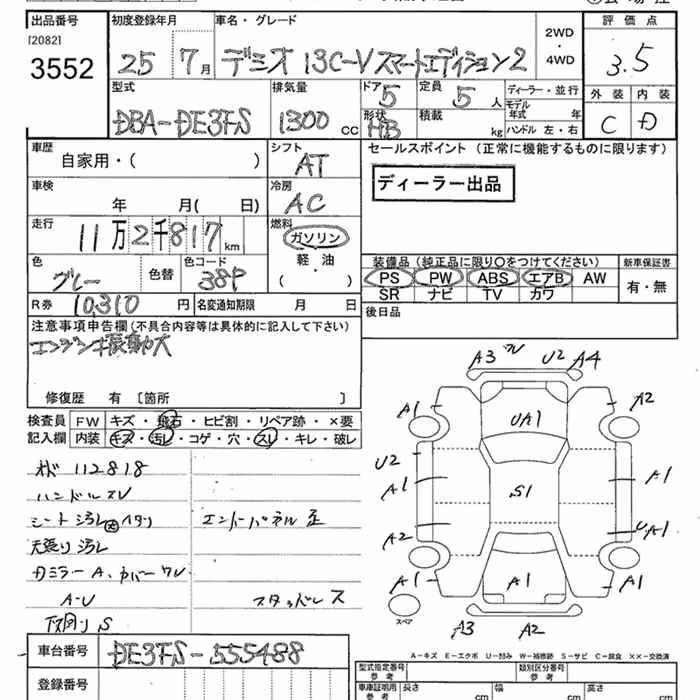 出品番号 初度登録年月 車名・グレード 2WD・4WD 評価点
[2082]
3552 25 7月 デミオ 13C-V スマートエディション2 3.5
型式 排気量 ドア 5 定員 5人 ディーラー・並行 外装 内装
DBA-DE3FS 1300 cc 形状 HB 積載 kg モデル年式 年 ハンドル 左・右 C D
車歴 自家用・( ) シフト AT セールスポイント (正常に機能するものに限ります)
車検 年 月( 日) 冷房 AC ディーラー出品
走行 11万2千817km 燃料 ガソリン
軽・油
( )
色 グレー 色替 色コード 38P 装備品 (純正品に限り○をつけてください) 新車保証書
PS PW ABS エアB AW 有・無
SR ナビ TV カワ
R券 10,310円 名変通知期限 月 日 後日品
注意事項申告欄(不具合内容等は具体的に記入して下さい)
エンジン振動大
修復歴 有 [箇所 ]
検査員 FW キズ・飛石・ヒビ割・リペア跡・×要
記入欄 内装 キズ・汚レ・コゲ・穴・スレ・キレ・破レ
112818
ハンドルスレ
シート汚レ大 ヘタリ エンドパネル 歪
天張り汚レ
Dミラー A、カバーワレ
A-U スタッドレス
下廻りS
A3 ワレ U2 A4
A1 A2
UA1
U2
A1 S1 A1
A2 U.A1
A1 A1 A1
スペア
A3 A2
A-キズ E-エクボ U-凹み W-補修跡 S-サビ C-腐食 XX-交換済
車台番号 DE3FS-555488
登録番号
型式指定番号 参考 類別区分番号 参考
車庫証明用 参考 長さ cm 幅 cm 高さ cm